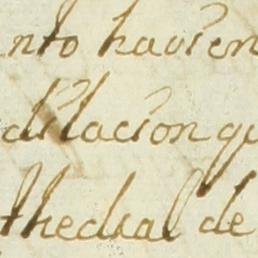 nto havien
dilacion qu
thedral de